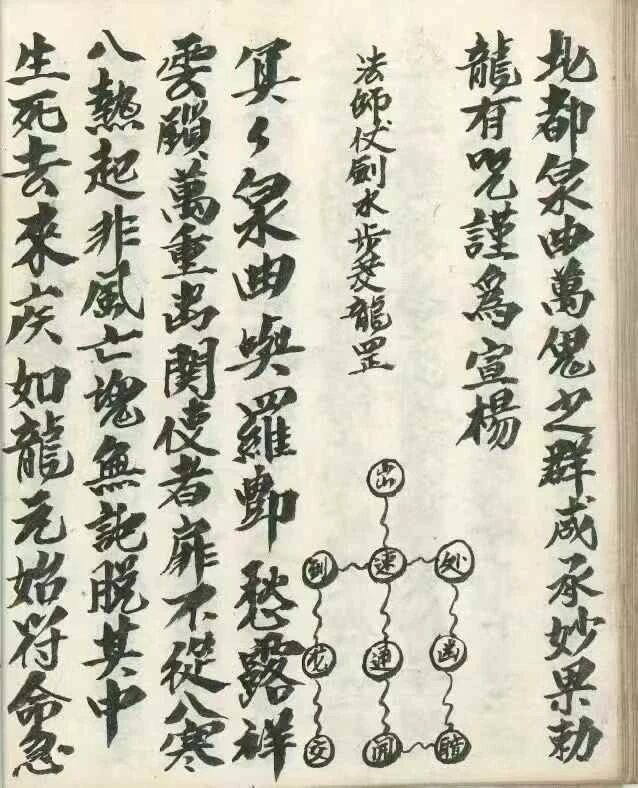 北都泉曲萬鬼之群咸承妙果勅
龍有咒謹為宣楊
法師仗劍水步發龍罡
冥々泉曲與羅酆愁露祥
雲鎖萬重出関使者扉不從八寒
八熱起非風亡魂無訛脫其中
生死去來疾如龍元始符命急
出
到 速 処
龙 通 幽
交 開